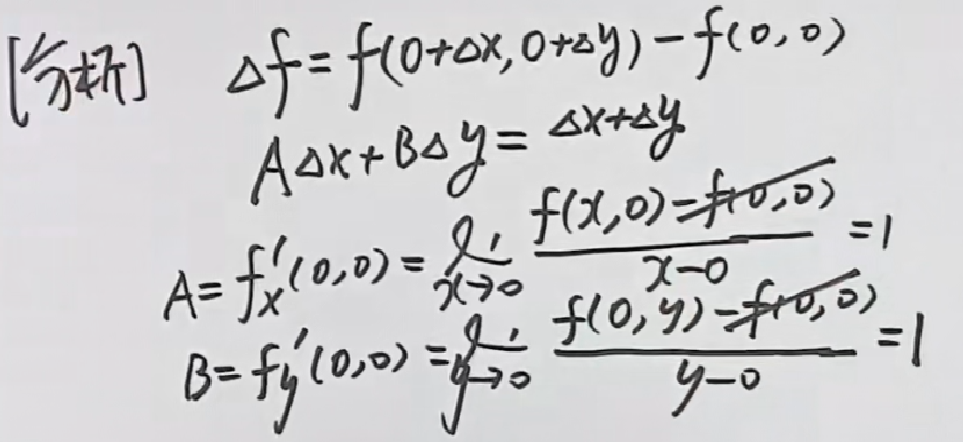 [分析] Δf=f(0+Δx,0+Δy)-f(0,0)
AΔx+BΔy=Δx+Δy
A=f'x(0,0)=lim x→0 (f(x,0)-f(0,0))/(x-0)=1
B=fy'(0,0)=lim y→0 (f(0,y)-f(0,0))/(y-0)=1